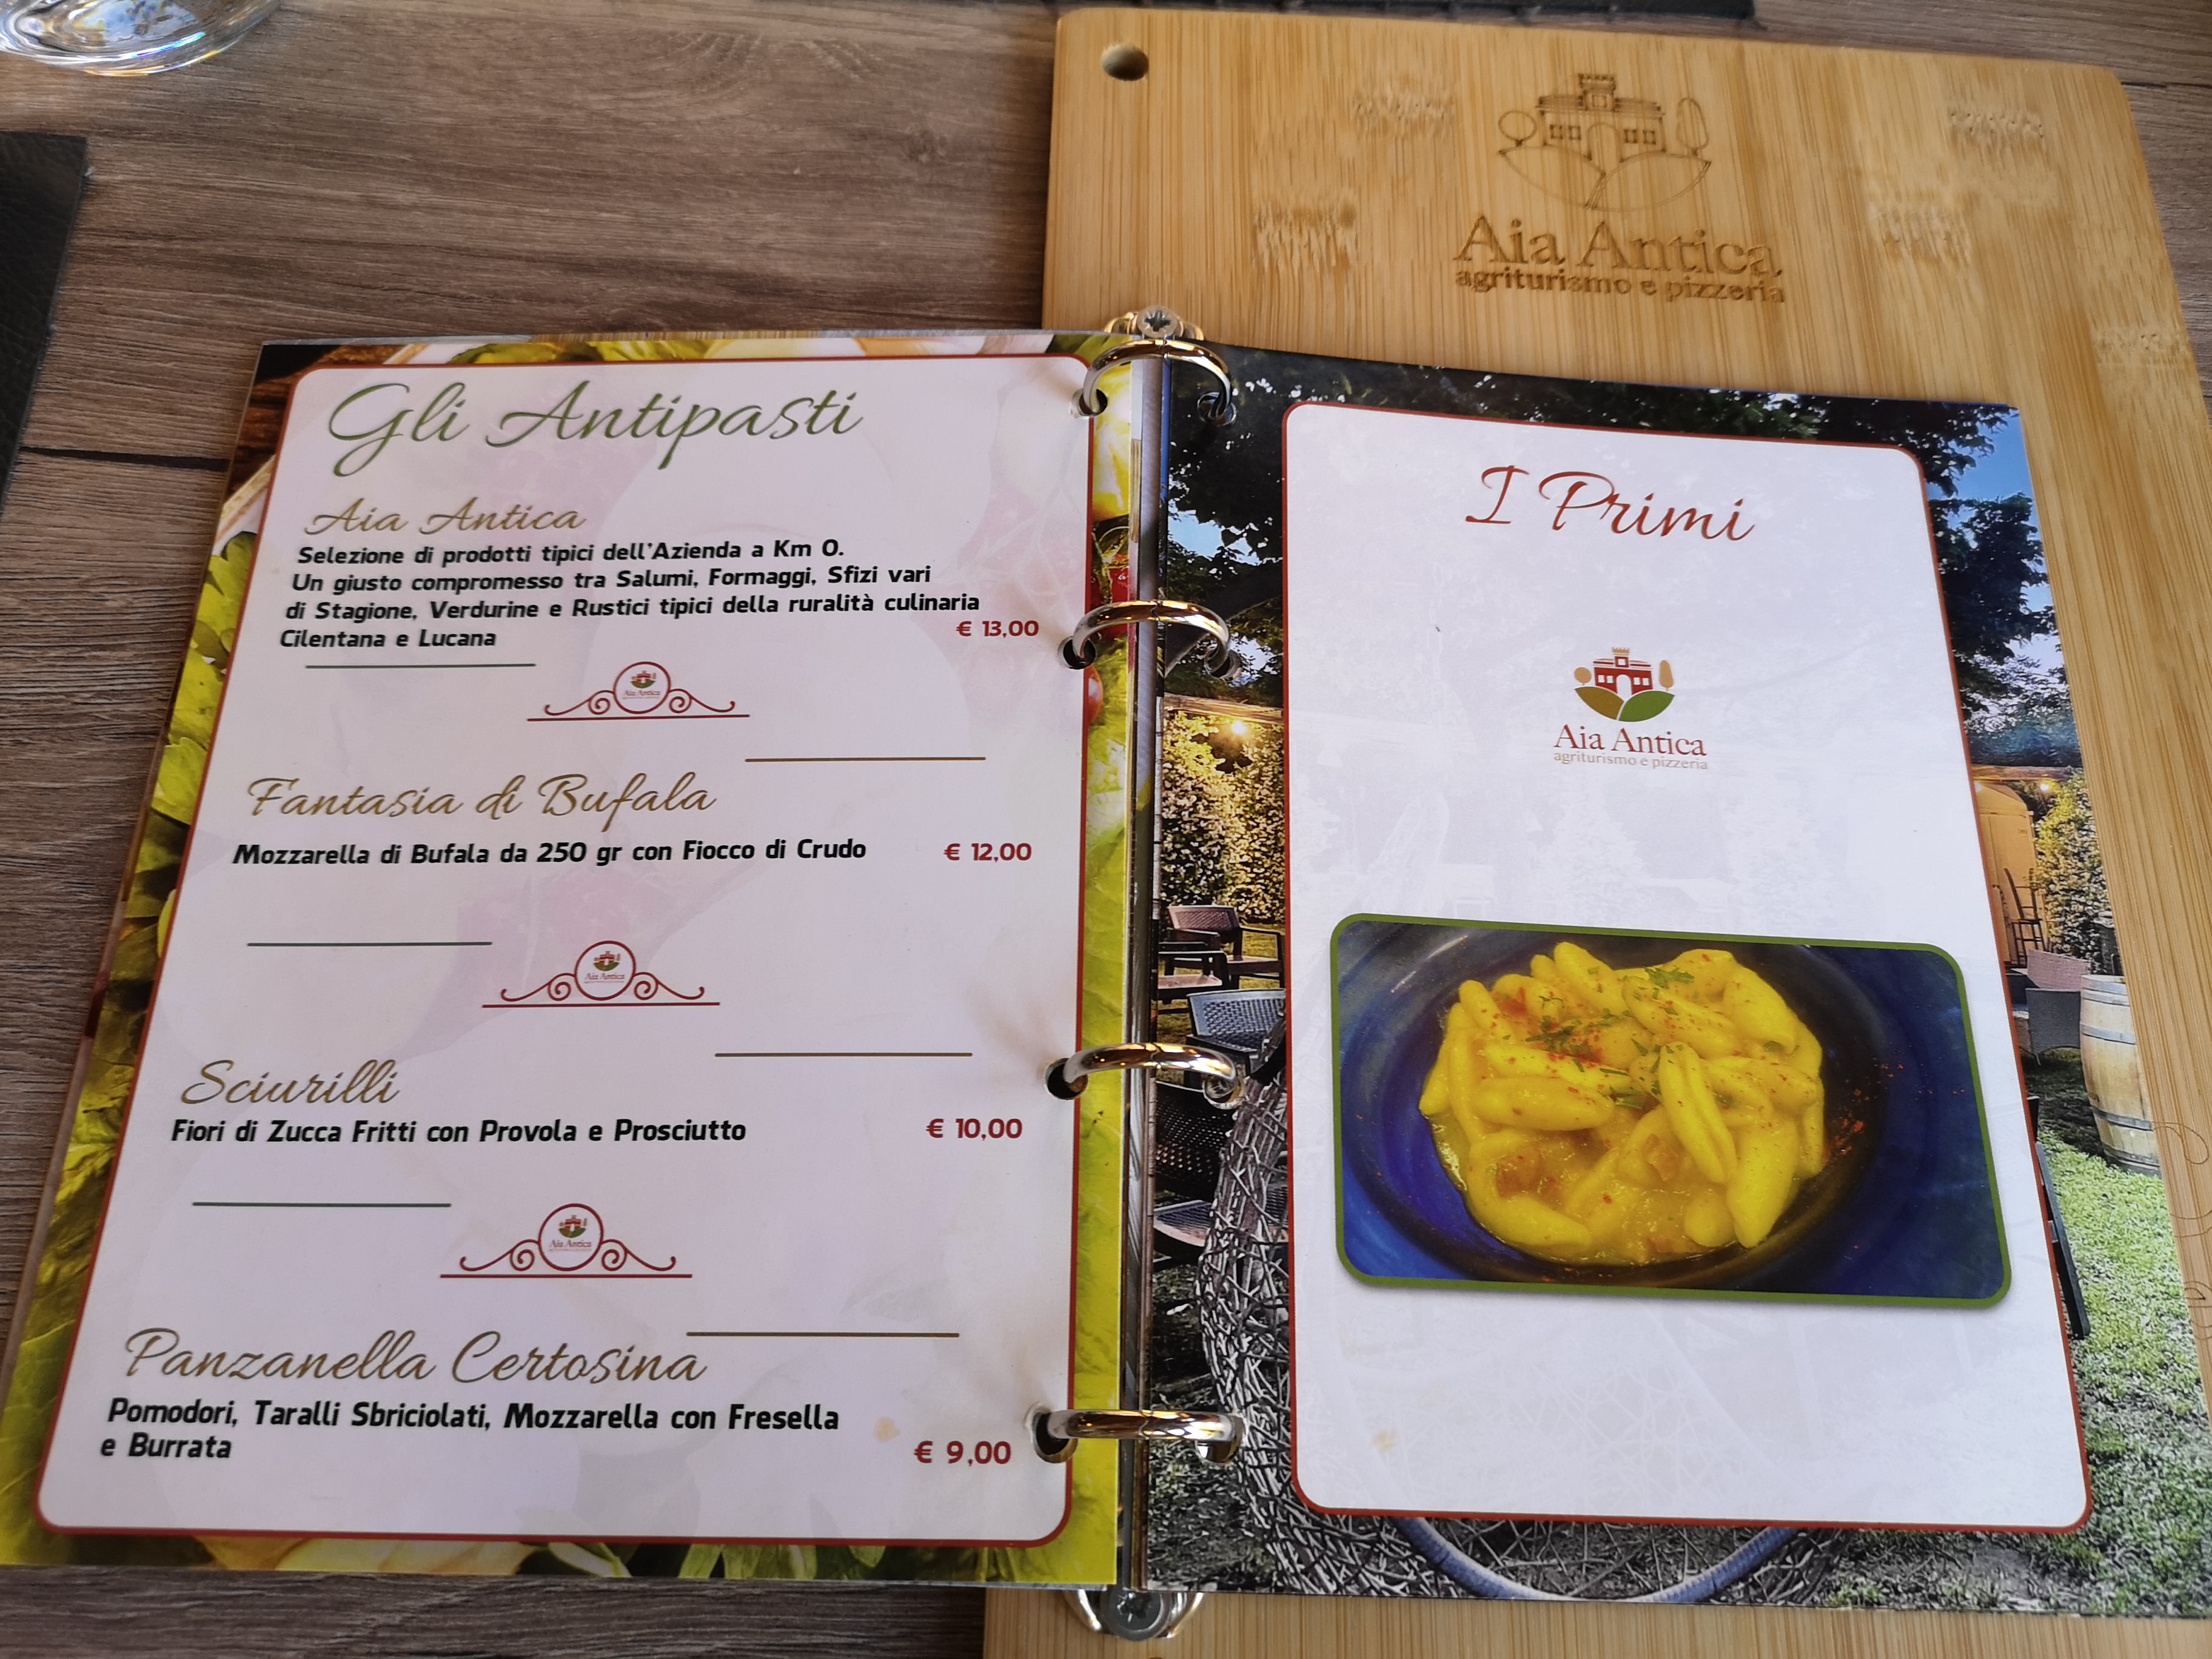 Aia Antica
agriturismo e pizzeria
Gli Antipasti
Aia Antica
Selezione di prodotti tipici dell'Azienda a Km 0.
Un giusto compromesso tra Salumi, Formaggi, Sfizi vari
di Stagione, Verdurine e Rustici tipici della ruralità culinaria
Cilentana e Lucana
€ 13,00
Aia Antica
Fantasia di Bufala
Mozzarella di Bufala da 250 gr con Fiocco di Crudo € 12,00
Aia Antica
Sciurilli
Fiori di Zucca Fritti con Provola e Prosciutto € 10,00
Aia Antica
Panzanella Certosina
Pomodori, Taralli Sbriciolati, Mozzarella con Fresella
e Burrata € 9,00
I Primi
Aia Antica
agriturismo e pizzeria